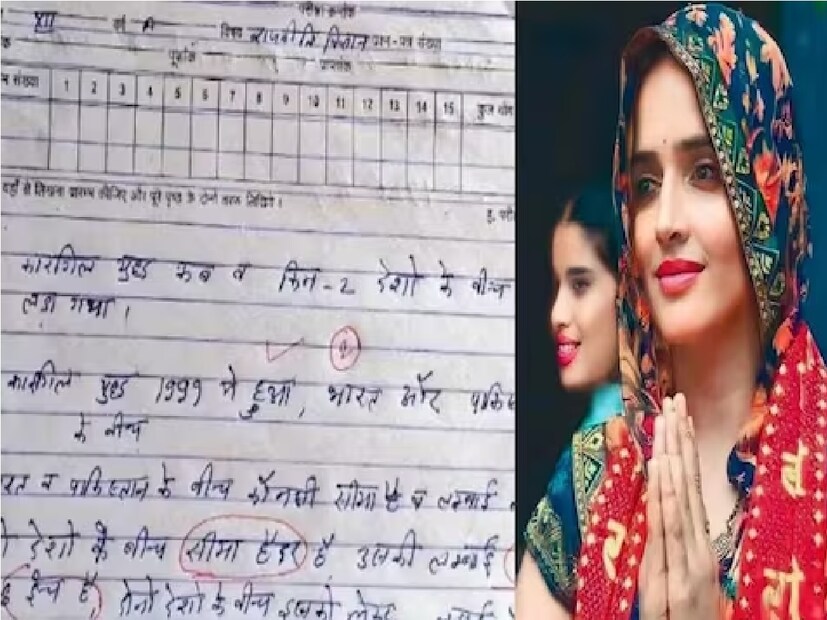 परीक्षा क्रमांक
XII वर्ग A विषय राजनीति विज्ञान प्रश्न-पत्र संख्या
पूर्णांक प्राप्तांक
संख्या 1 2 3 4 5 6 7 8 9 10 11 12 13 14 15 कुल योग
यहाँ से लिखना प्रारम्भ कीजिए और पूरे पृष्ठ के दोनों तरफ लिखिये।
कारगिल युद्ध कब व किन-2 देशो के बीच
लडा गया।
कारगिल युद्ध 1999 मे हुआ, भारत और
के बीच
व पाकिस्तान के बीच कौनसी सीमा है व लम्बाई
देशो के बीच सीमा हैदर है उसकी लम्बाई
ईन्च है, दोनो देशो के बीच इसको लेकर